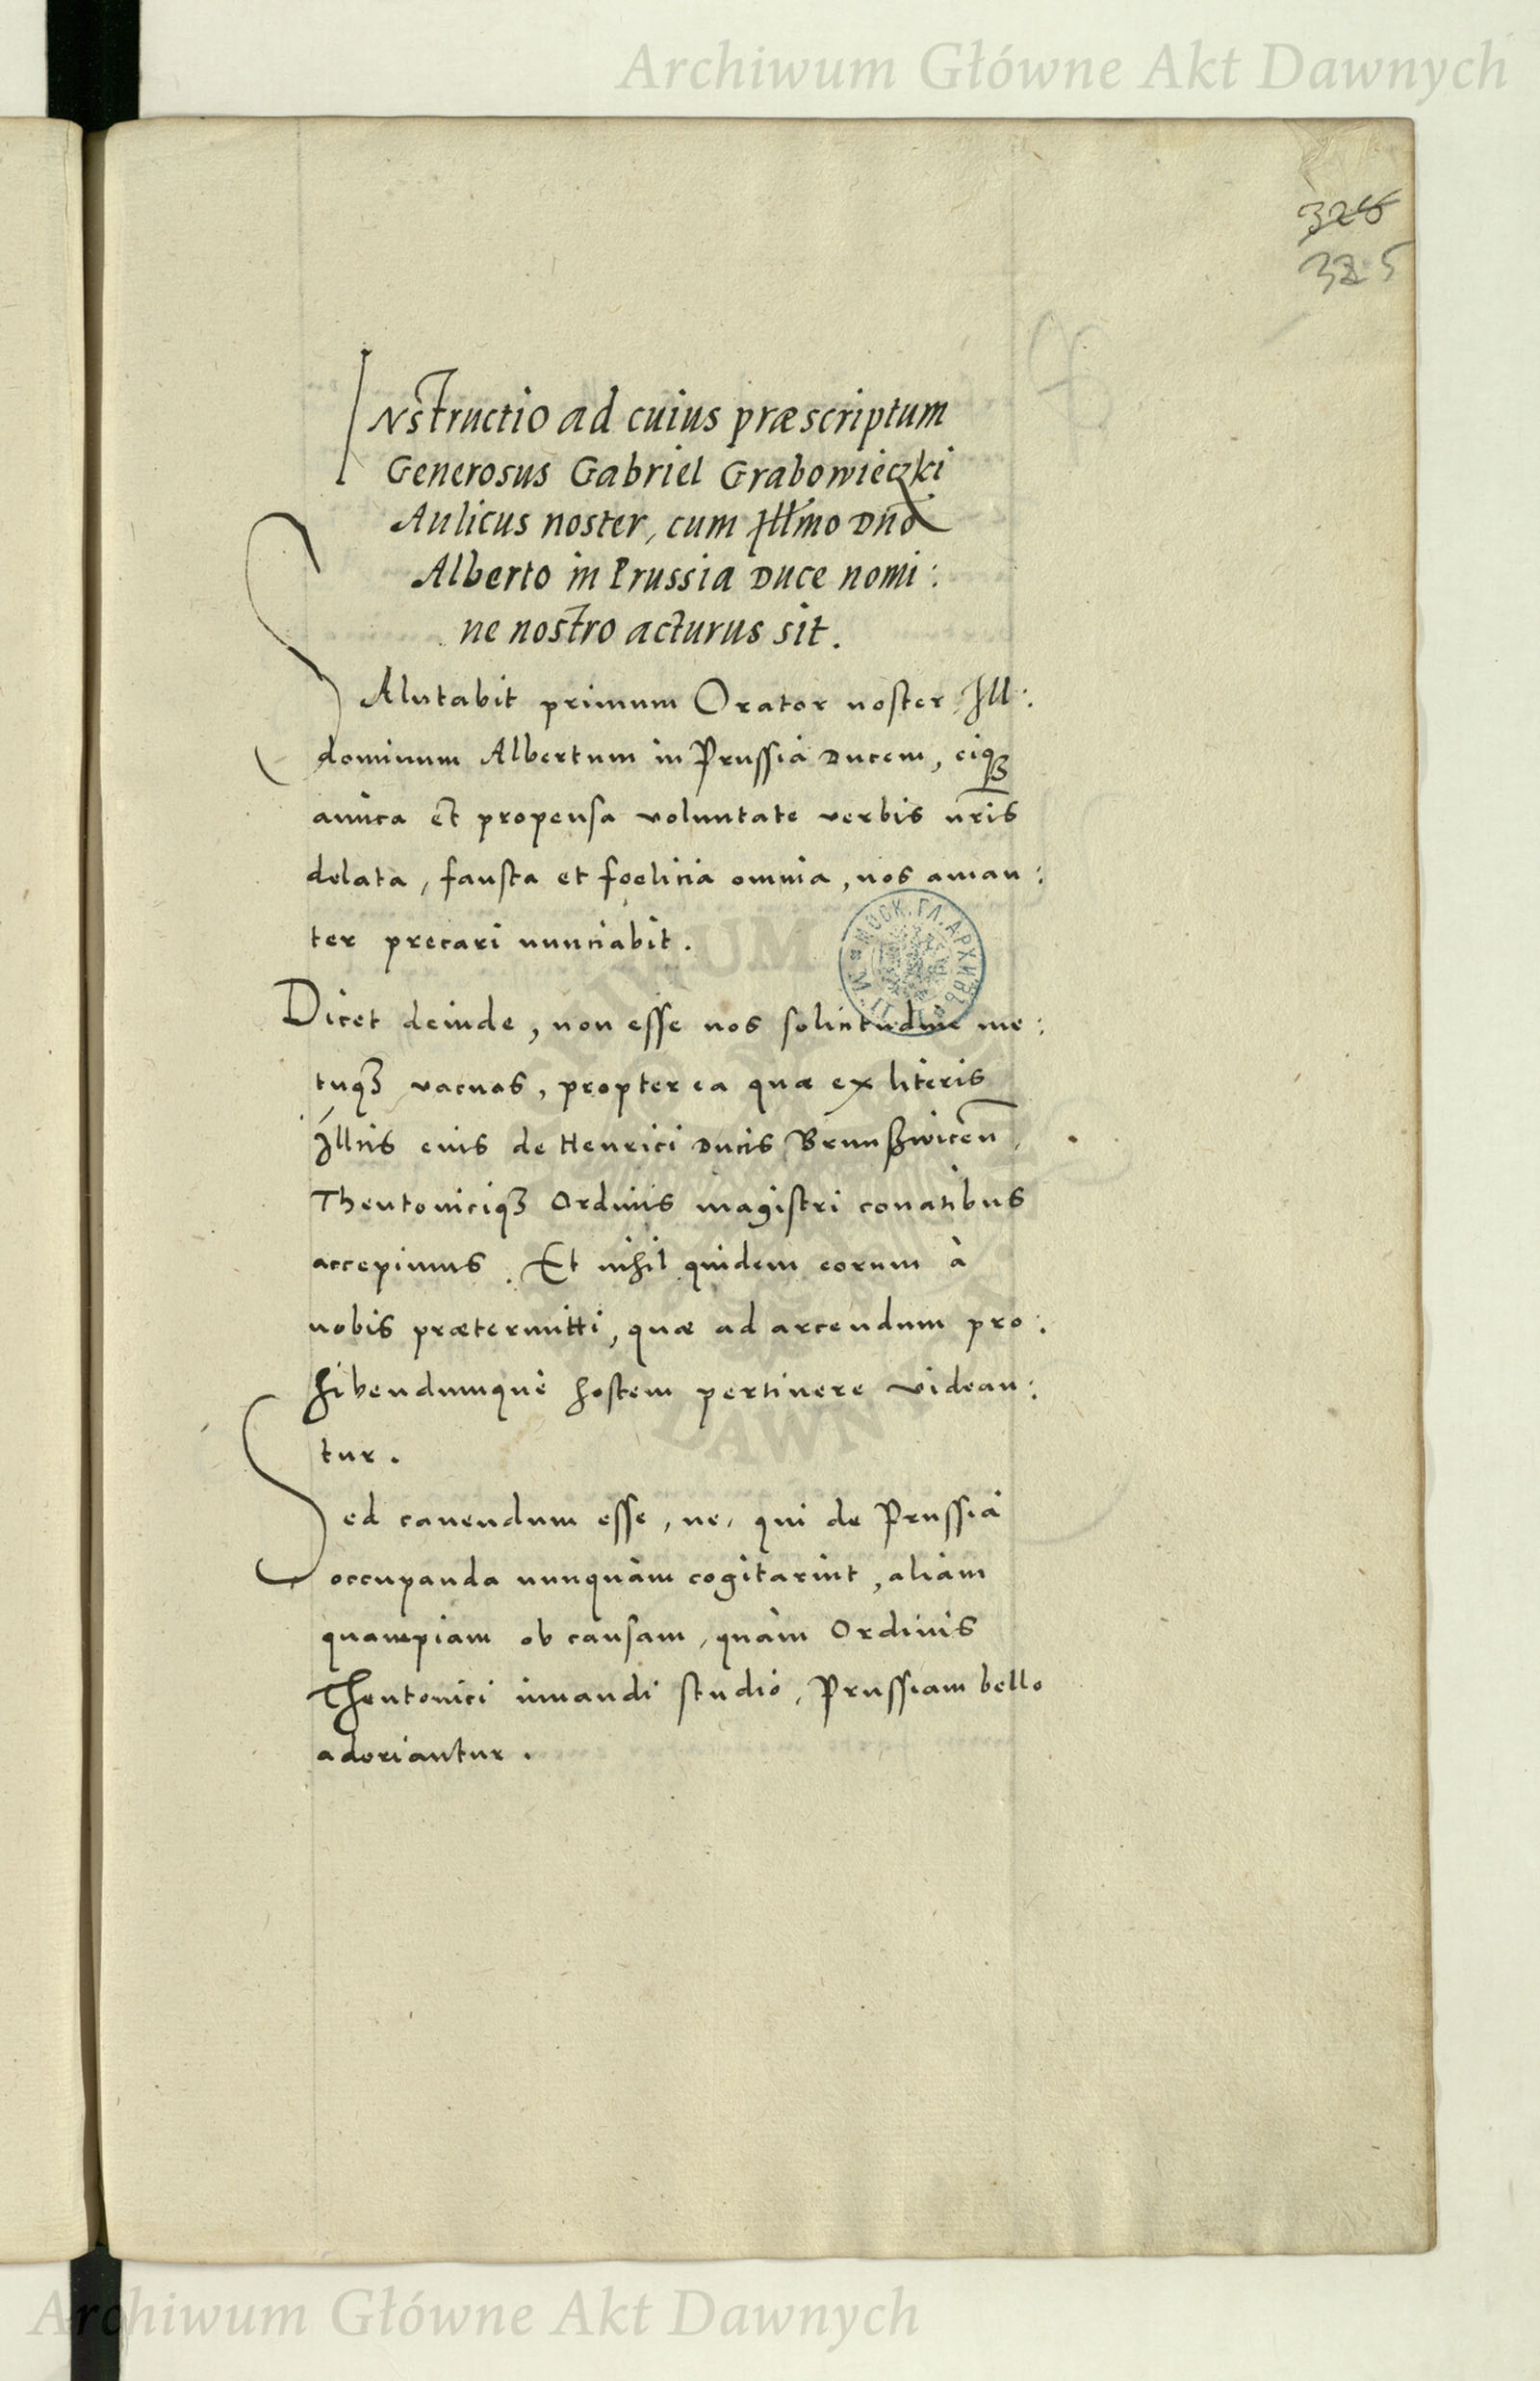 Archiwum Główne Akt Dawnych
326
325
INstructio ad cuius præscriptum
Generosus Gabriel Grabowieczki
Aulicus noster, cum Illmo Dno
Alberto in Prussia Duce nomi:
ne nostro acturus sit.
SAlutabit primum Orator noster Ill:
dominum Albertum in Prussia Ducem, eiqꝫ
amica et propensa voluntate verbis nris
delata, fausta et foelicia omnia, nos aman:
ter precari nunciabit.
Dicet deinde, non esse nos solicitudine me:
tuqꝫ vacuos, propter ea quæ ex literis
Illtis eius de Henrici Ducis Brunßwicen,
Theutoniciqꝫ Ordinis magistri conatibus
accepimus. Et nihil quidem eorum à
nobis prætermitti, quæ ad arcendum pro:
hibendumquè hostem pertinere videan:
tur.
Sed cauendum esse, ne, qui de Prussia
occupanda nunquàm cogitarint, aliam
quampiam ob causam, quàm Ordinis
Theutonici iuuandi studio, Prussiam bello
adoriantur.
МОСК. ГЛ. АРХИВЪ
ARCHIWUM
DAWNYCH
Archiwum Główne Akt Dawnych